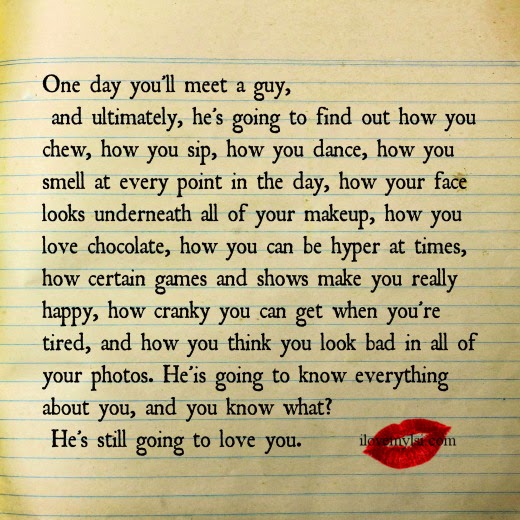 One day you'll meet a guy,
and ultimately, he's going to find out how you
chew, how you sip, how you dance, how you
smell at every point in the day, how your face
looks underneath all of your makeup, how you
love chocolate, how you can be hyper at times,
how certain games and shows make you really
happy, how cranky you can get when you're
tired, and how you think you look bad in all of
your photos. He'is going to know everything
about you, and you know what?
He's still going to love you.
ilovemylsi.com